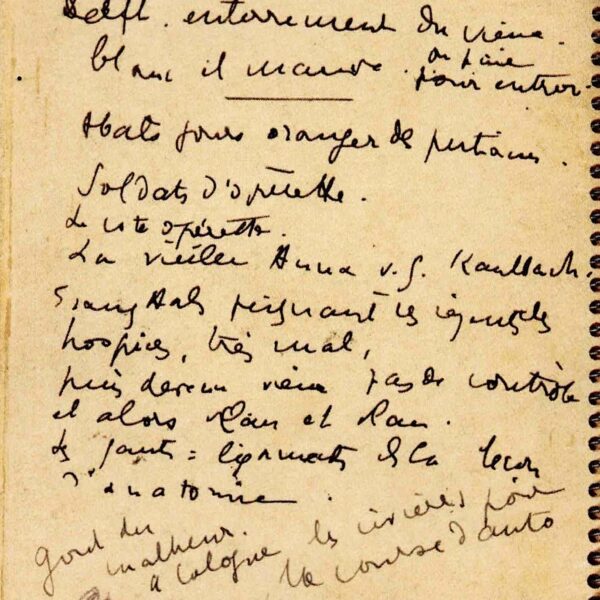 Delft. enterrement du vieux.
blanc il manda. on paie
pour entrer.
Abats jours oranger de
Soldats d'opérette.
Le côté opérette.
La vieille Anna v. g. Kaulbach.
Franz Hals peignant les régents des
hospices, très mal,
puis devenu vieux pas de contrôle
et alors Ran et Ran.
Les gants = ligaments de la leçon
d'anatomie.
gout du
malheur.
à Cologne les civières pour
la course d'auto